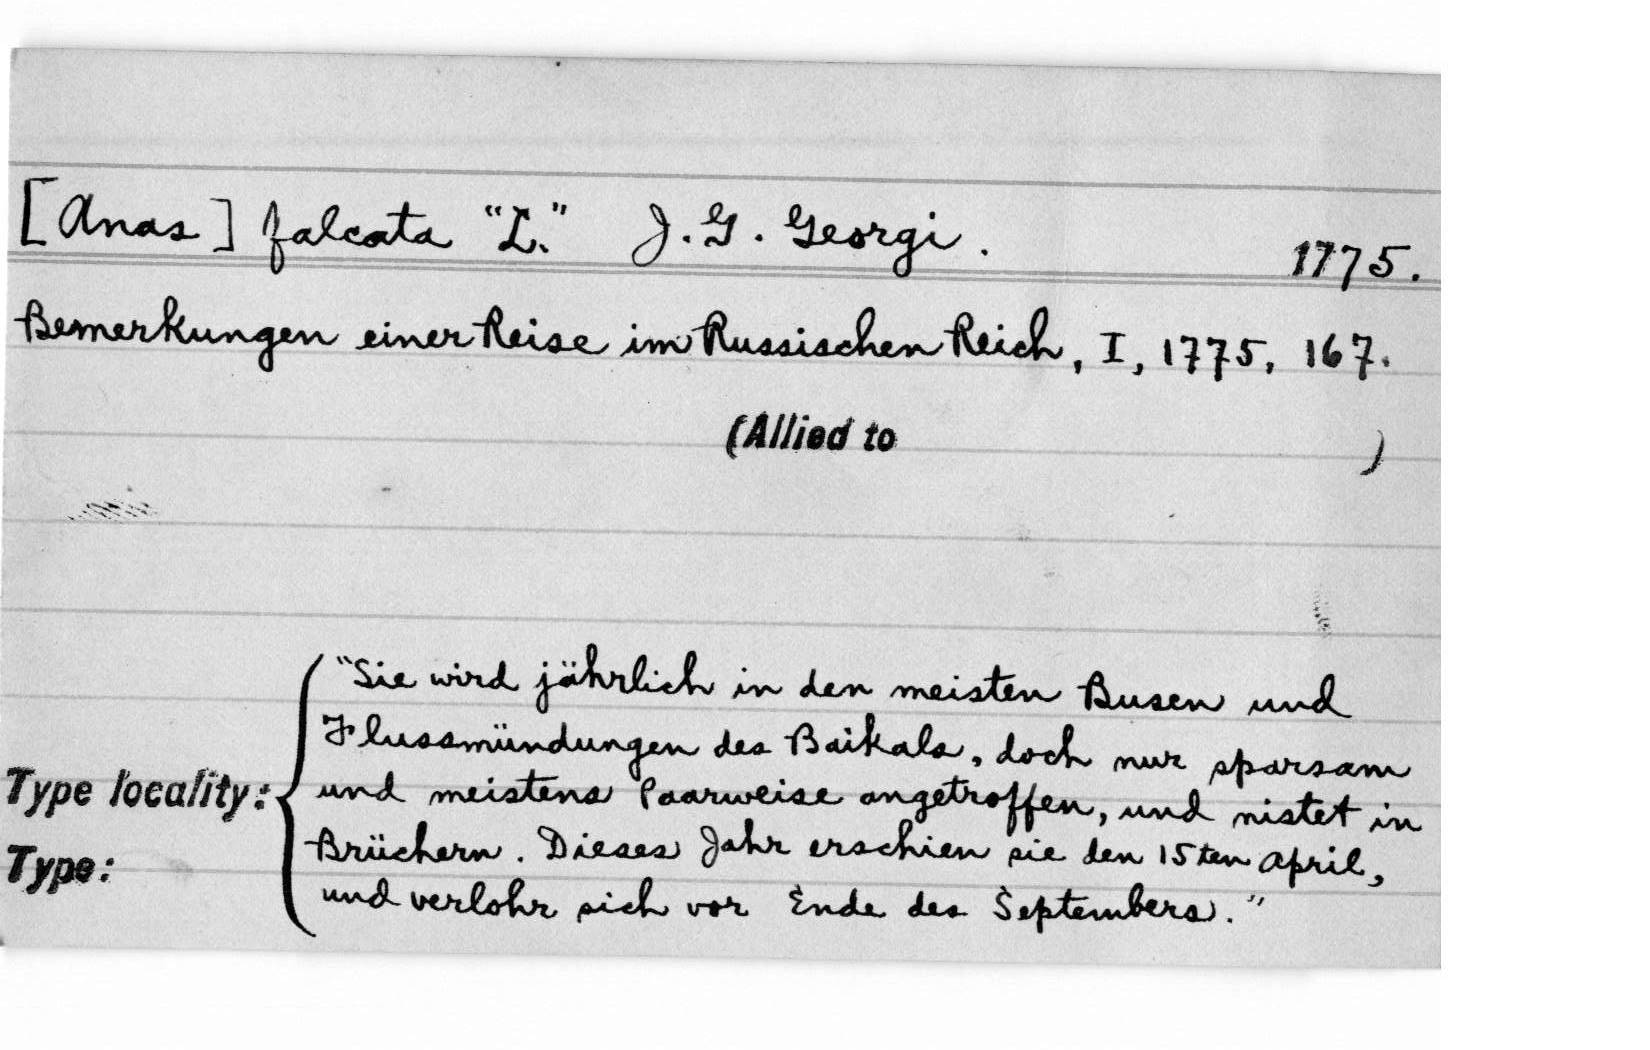 [Anas] falcata "L." J. G. Georgi. 1775.
Bemerkungen einer Reise im Russischen Reich, I, 1775, 167.
(Allied to )
"Sie wird jährlich in den meisten Busen und
Flussmündungen des Baikals, doch nur sparsam
Type locality: und meistens Paarweise angetroffen, und nistet in
Type: Brüchern. Dieses Jahr erschien sie den 15ten April,
und verlohr sich vor Ende des Septembers."